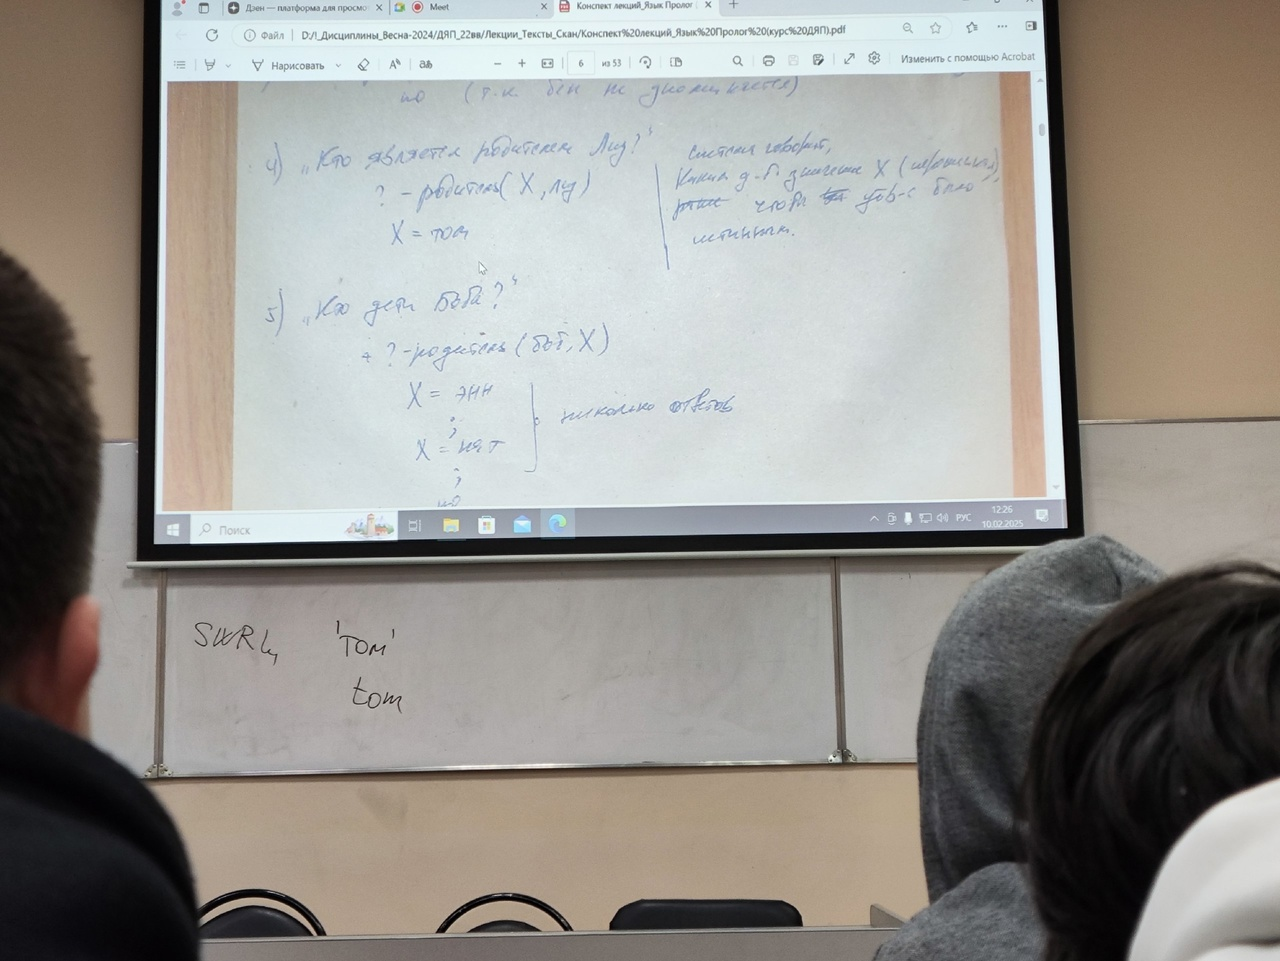 Дзен — платформа для просмо
Meet
Конспект лекций_Язык Пролог (
Файл
D:/I_Дисциплины_Весна-2024/ДЯП_22вв/Лекции_Тексты_Скан/Конспект%20лекций_Язык%20Пролог%20(курс%20ДЯП).pdf
Нарисовать
аあ
6 из 53
Изменить с помощью Acrobat
но (т.к. бен не
4) „Кто является родителем Лиз?“
? - родитель( X, лиз)
X = том
Система говорит,
каким д.б. значение X
чтобы утв-е было
истинным.
5) „Кто дети Боба?“
? - родитель (боб, X)
X = энн
;
X = пат
;
но
несколько ответов
Поиск
РУС
12:26
10.02.2025
SWRL, 'Том'
tom